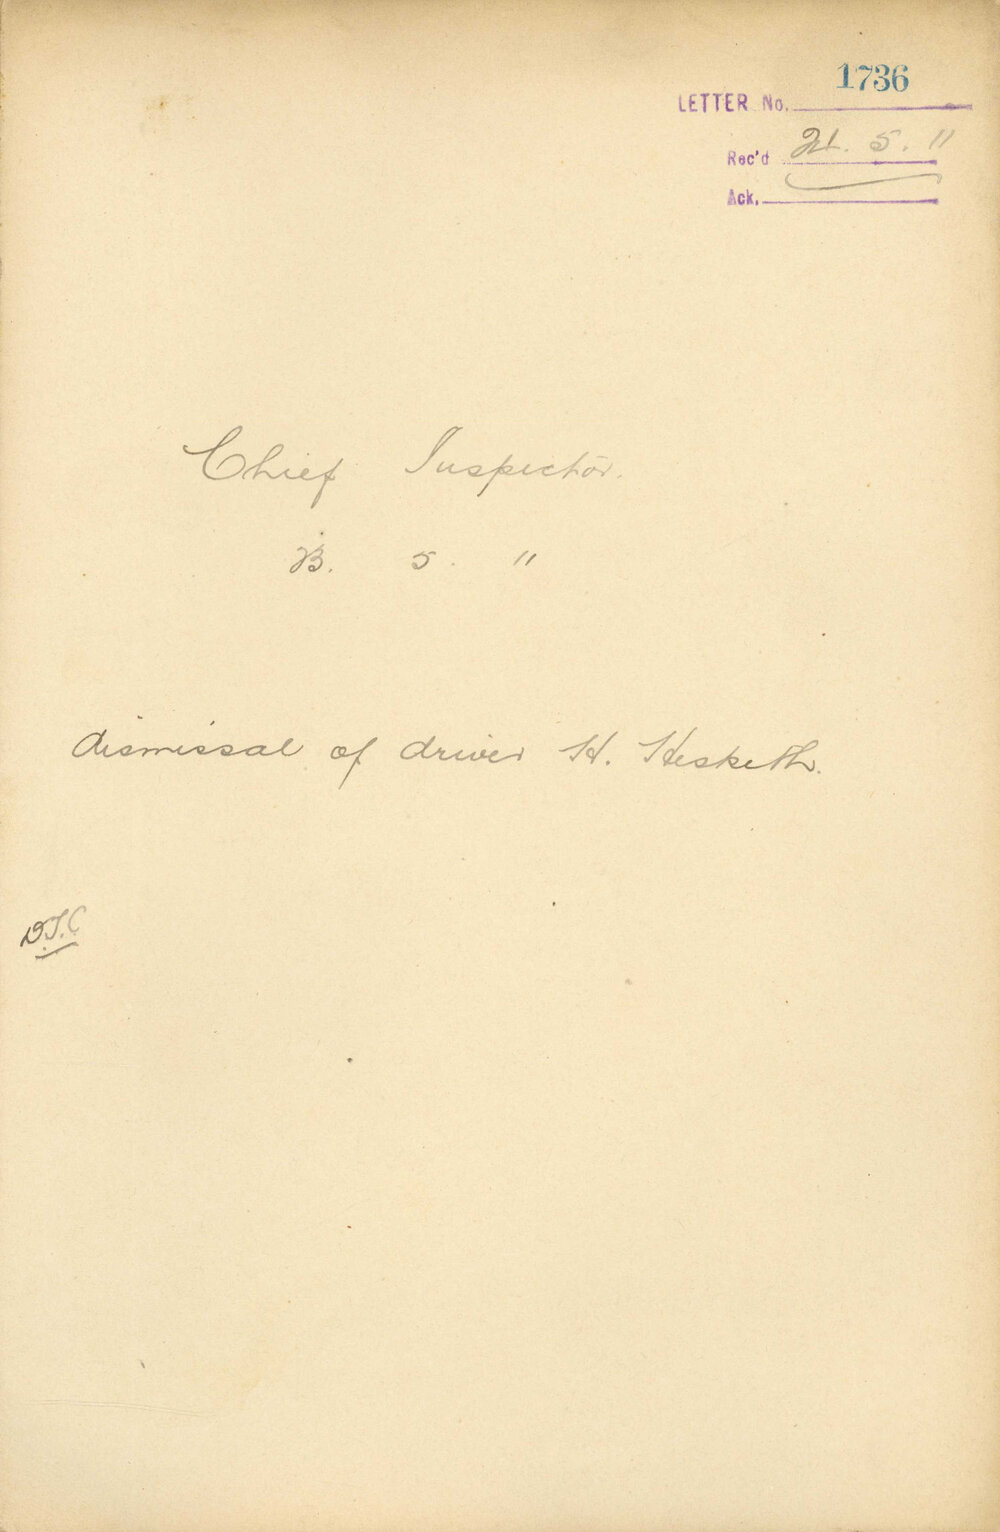 1736
LETTER No.
Rec'd 5. 11
Ack.
Chief Inspector.
5. 11
dismissal of driver H. Hesketh.